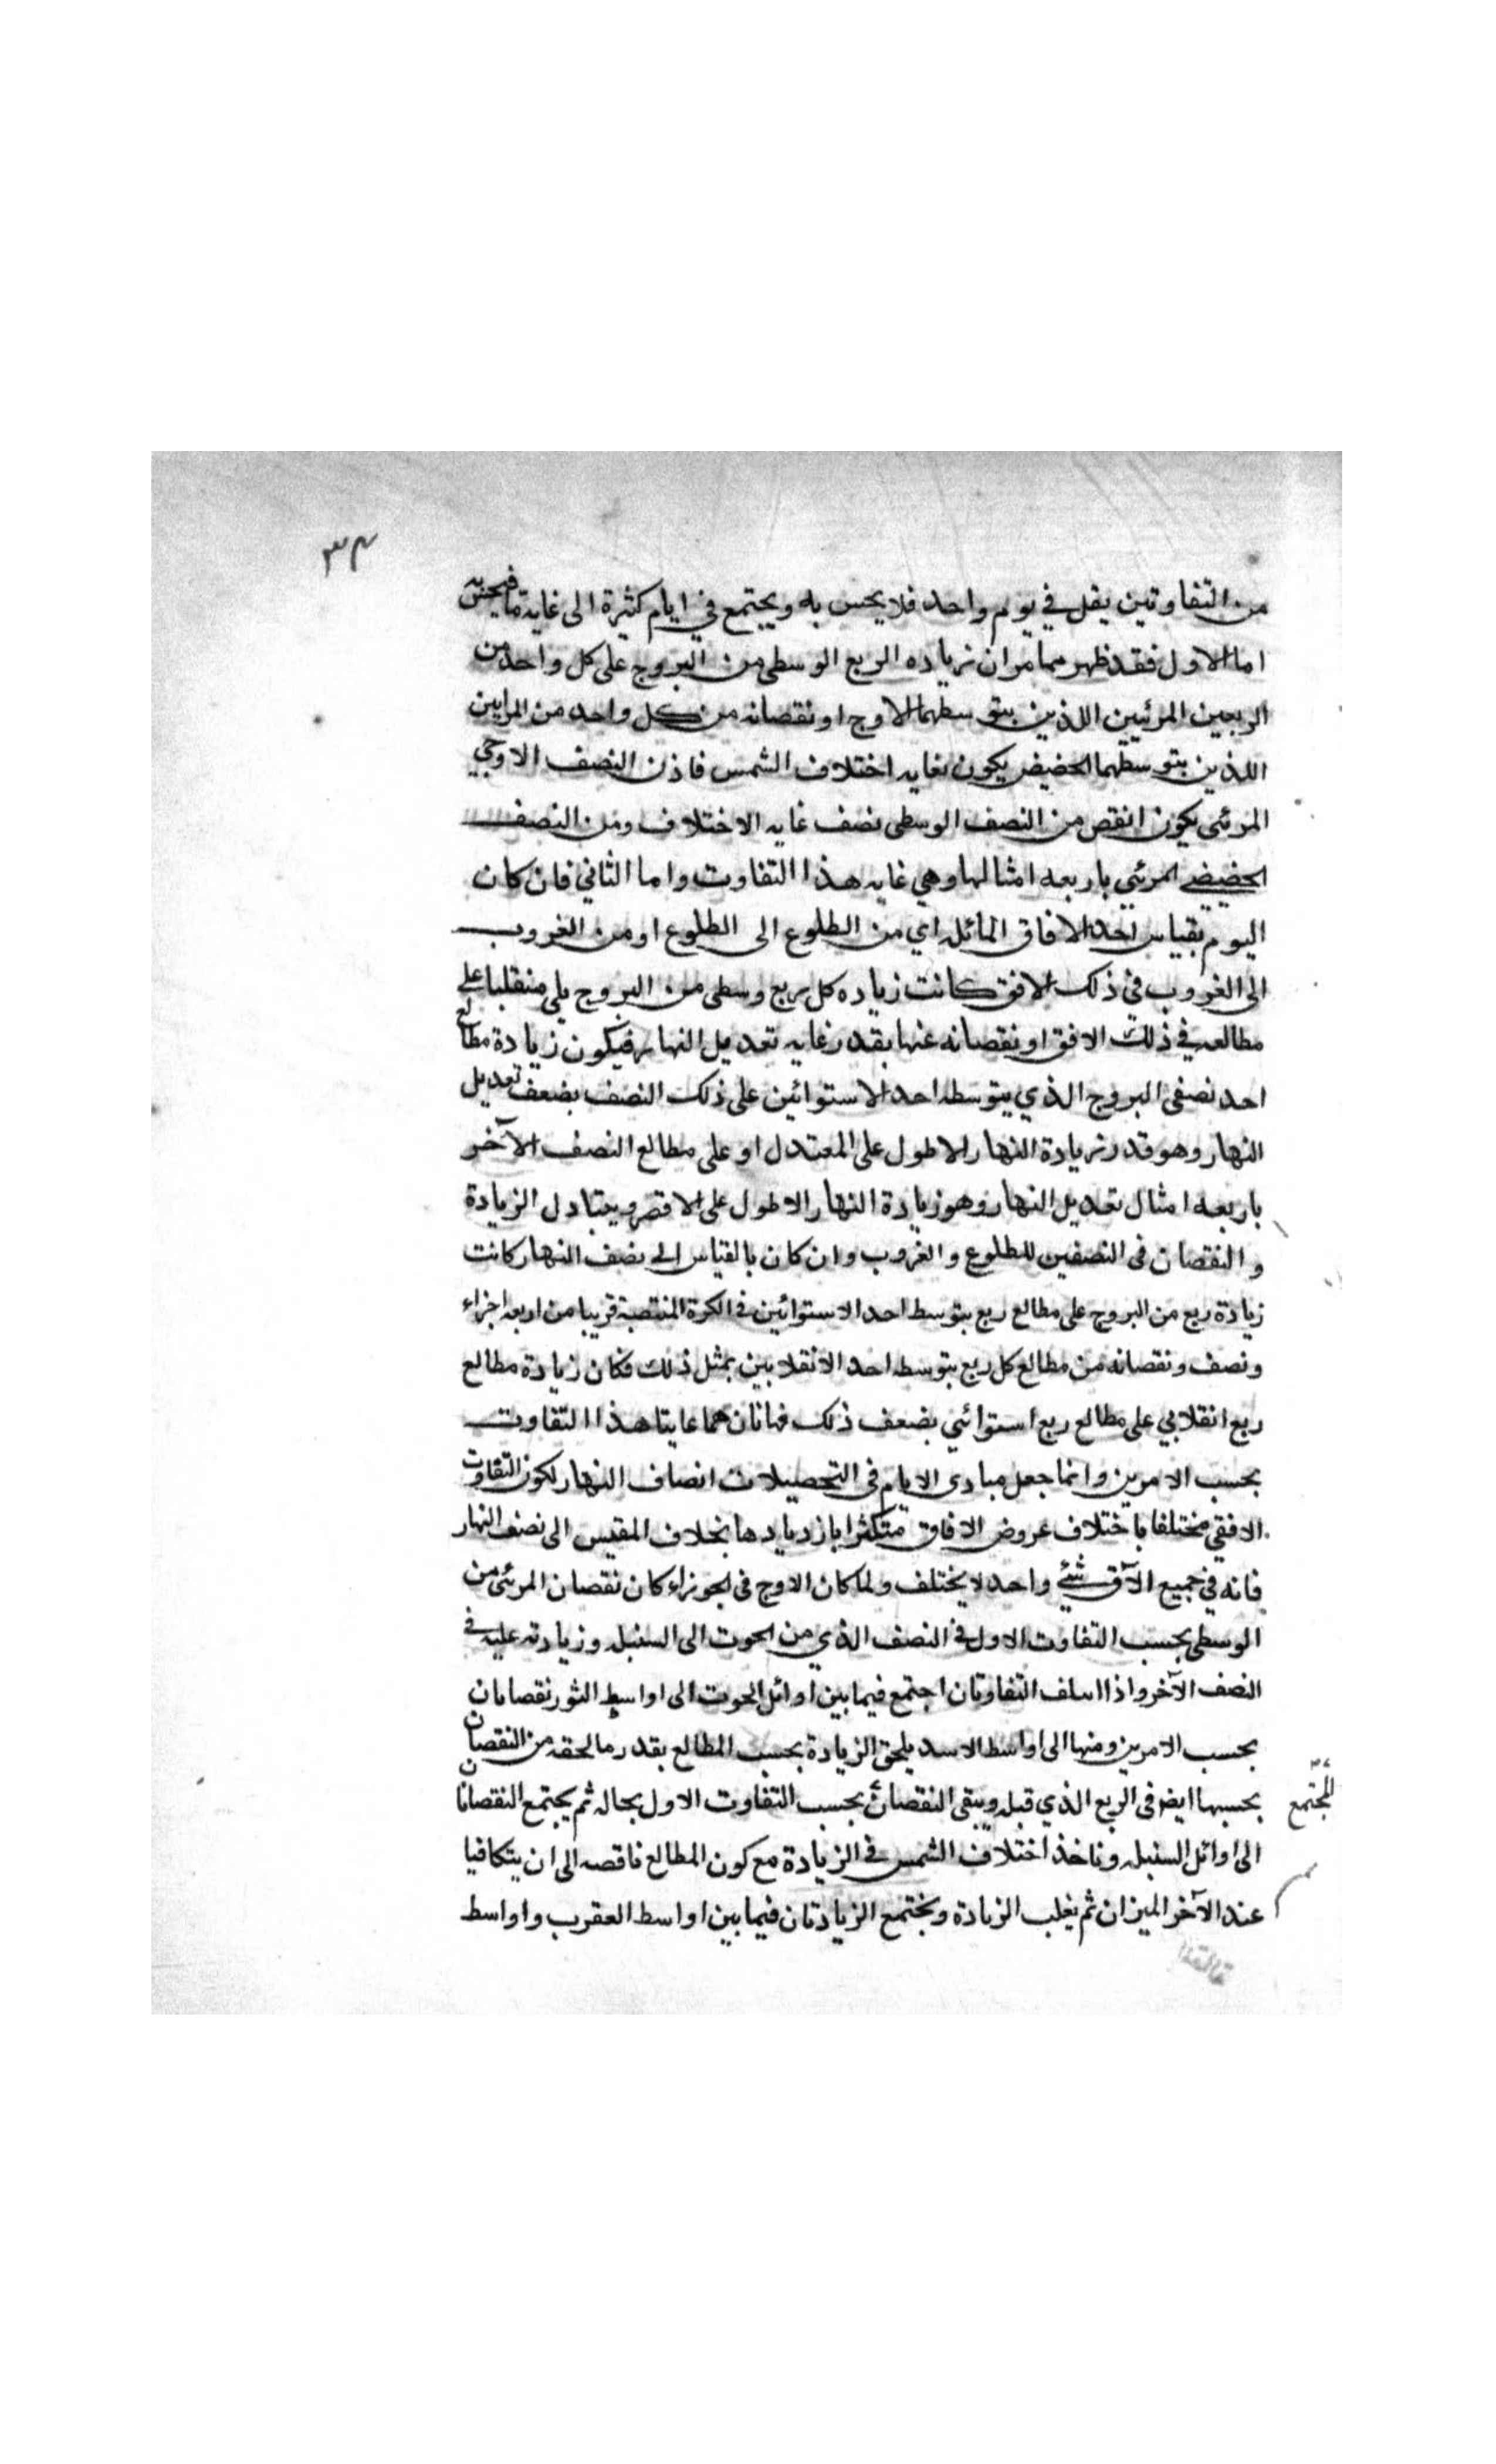 ٣٤
من التفاوتين يقل في يوم واحد فلا يحس به ويجتمع في ايام كثيرة الى غاية ما فيحس به
اما الاول فقد ظهر مما مر ان زياده الربع الوسطى من البروج على كل واحد من
الربعين المرئيين اللذين يتوسطهما الاوج او نقصانه من كل واحد من المرئيين
اللذين يتوسطهما الحضيض يكون بغايه اختلاف الشمس فاذن النصف الاوجي
المرئي يكون انقص من النصف الوسطى بضعف غايه الاختلاف ومن النصف
الحضيضي المرئي باربعه امثالها وهي غايه هذا التفاوت واما الثاني فان كان
اليوم بقياس احد الافاق المائله اي من الطلوع الى الطلوع او من الغروب
الى الغروب في ذلك الافق كانت زياده كل ربع وسطى من البروج يلي منقلبا على
مطالعه في ذلك الافق او نقصانه عنها بقدر غايه تعديل النهار فيكون زيادة مطالع
احد نصفى البروج الذي يتوسطه احد الاستوائين على ذلك النصف بضعف تعديل
النهار وهو قدر زيادة النهار الاطول على المعتدل او على مطالع النصف الآخر
باربعه امثال تعديل النهار وهو زيادة النهار الاطول على الاقصر ويتبادل الزيادة
والنقصان في النصفين للطلوع والغروب وان كان بالقياس الى نصف النهار كانت
زيادة ربع من البروج على مطالع ربع يتوسط احد الاستوائين في الكرة المنتصبة قريبا من اربعه اجزاء
ونصف ونقصانه من مطالع كل ربع يتوسطه احد الانقلابين بمثل ذلك فكان زيادة مطالع
ربع انقلابي على مطالع ربع استوائي بضعف ذلك فهاتان هما غايتا هذا التفاوت
بحسب الامرين وانما جعل مبادى الايام في التحصيلات انصاف النهار لكون التفاوت
الافقي مختلفا باختلاف عروض الافاق متكثرا بازديادها بخلاف المقيس الى نصف النهار
فانه في جميع الآفق شئ واحد لا يختلف ولما كان الاوج في الجوزاء كان نقصان المرئي من
الوسطى بحسب التفاوت الاول في النصف الذي من الحوت الى السنبله وزيادته عليه في
النصف الآخر واذا التفاوتان اجتمع فيما بين اوائل الحوت الى اواسط الثور نقصانان
بحسب الامرين ومنها الى اواسط الاسد يلحق الزيادة بحسب المطالع بقدر ما لحقه من النقصان
بحسبها ايضا في الربع الذي قبله ويبقى النقصان بحسب التفاوت الاول بحاله ثم يجتمع النقصانان
المجتمع
الى اوائل السنبله وناخذ اختلاف الشمس في الزيادة مع كون المطالع ناقصه الى ان يتكافيا
عند الآخر الميزان ثم يغلب الزيادة ويجتمع الزيادتان فيما بين اواسط العقرب واواسط